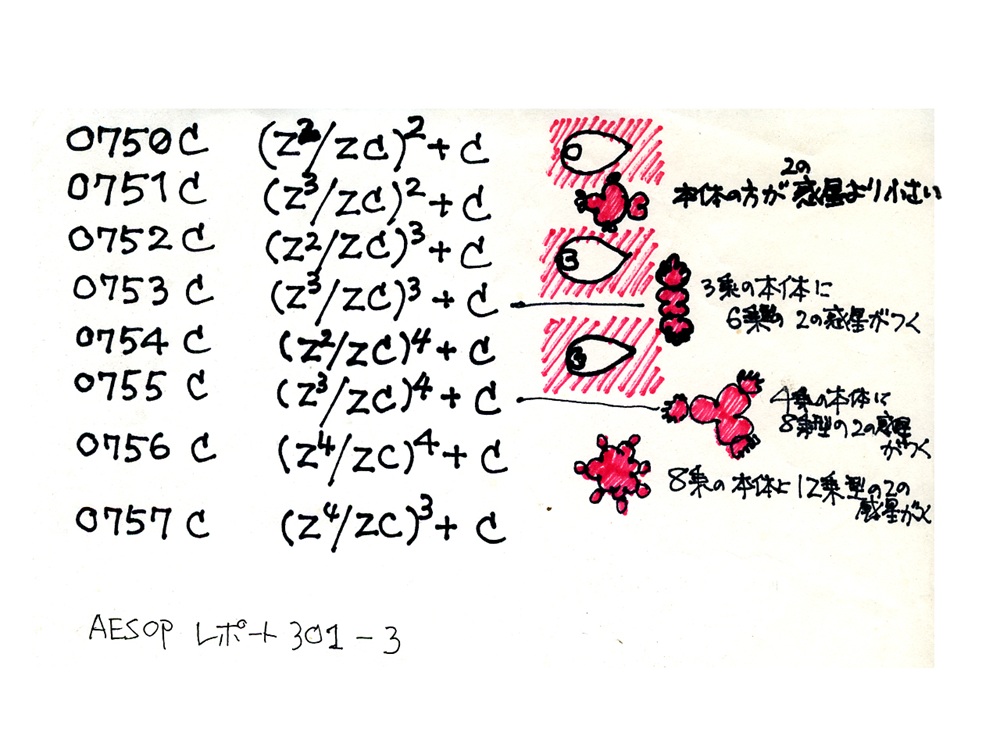 0750C (Z²/ZC)²+C
0751C (Z³/ZC)²+C
2の
本体の方が惑星より小さい
0752C (Z²/ZC)³+C 3
0753C (Z³/ZC)³+C
3乗の本体に
6乗型の2の惑星がつく
0754C (Z²/ZC)⁴+C 3
0755C (Z³/ZC)⁴+C
4乗の本体に
8乗型の2の惑星
がつく
0756C (Z⁴/ZC)⁴+C
8乗の本体に12乗型の2の
惑星がつく
0757C (Z⁴/ZC)³+C
AESOP レポート 301-3